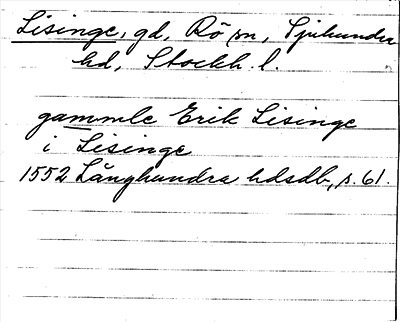 Lisinge, gd, Rö sn, Sjuhundra
hd, Stockh. l.
gammle Erik Lisinge
i Lisinge
1552 Långhundra hdsdb, s. 61.